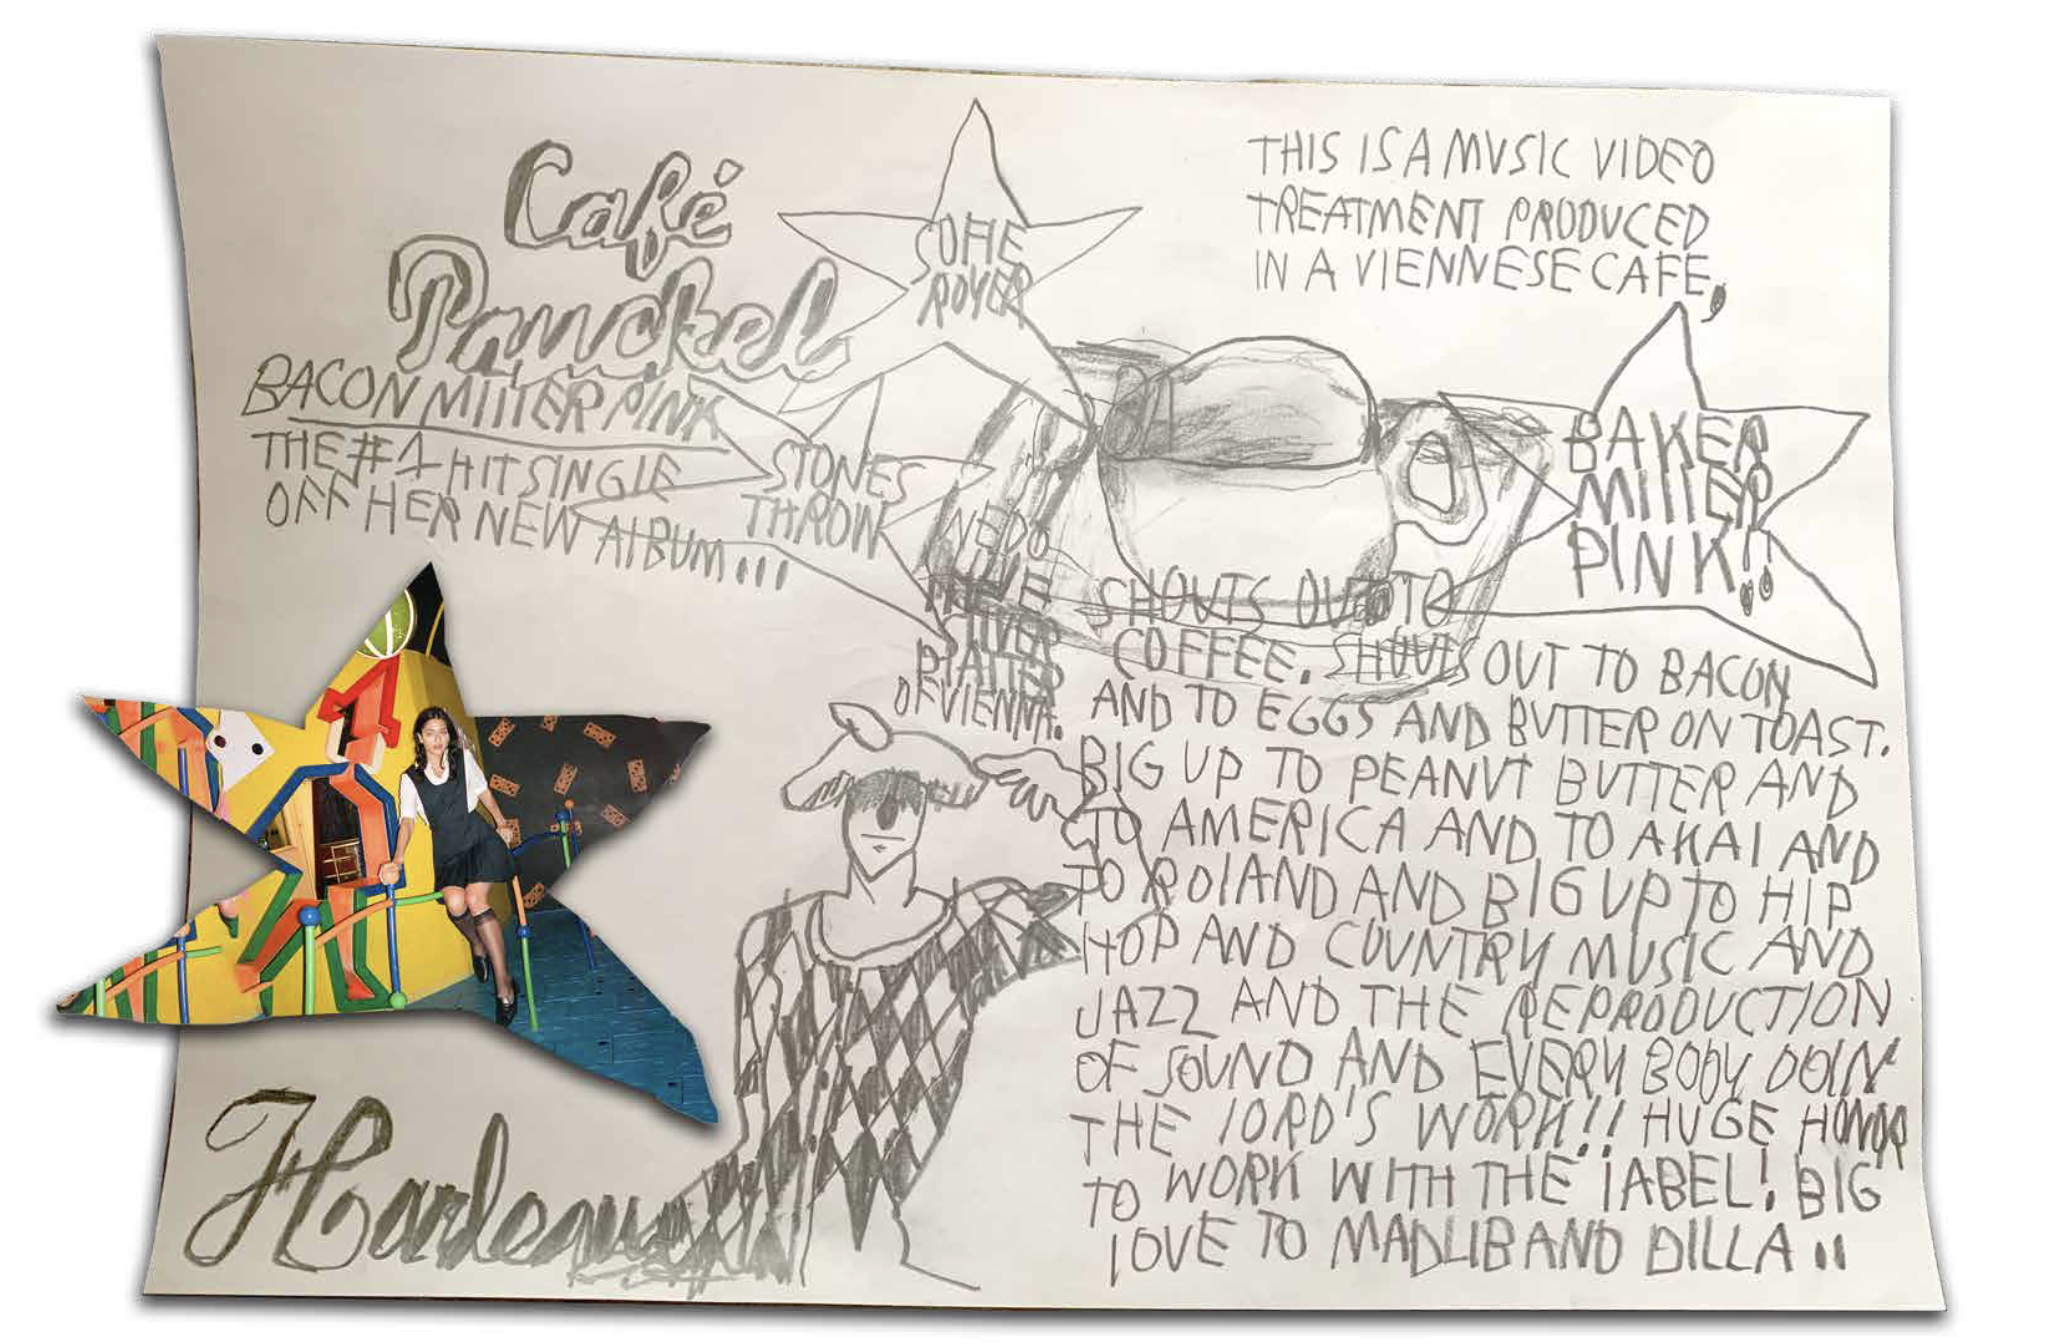 Café
SOFIE
ROYER
THIS IS A MUSIC VIDEO
TREATMENT PRODUCED
IN A VIENNESE CAFE,
BACON MILLER PINK
THE #1 HIT SINGLE
OFF HER NEW ALBUM!!!
STONES
THROW
BAKER
MILLER
PINK!!
LIVE
THE
SILVER
PLATTER
OF VIENNA.
SHOUTS OUT TO
COFFEE. SHOUTS OUT TO BACON
AND TO EGGS AND BUTTER ON TOAST.
BIG UP TO PEANUT BUTTER AND
TO AMERICA AND TO AKAI AND
TO ROLAND AND BIG UP TO HIP
HOP AND COUNTRY MUSIC AND
JAZZ AND THE REPRODUCTION
OF SOUND AND EVERY BODY DOIN'
THE LORD'S WORK!! HUGE HONOR
TO WORK WITH THE LABEL! BIG
LOVE TO MADLIB AND DILLA!!
1
Harlequin